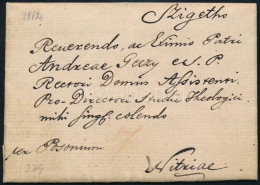 1812
Szigetho
Reverendo, ac Eximio Patri
Andreae Gazy e S. P.
Rectori Domus Assistenti
Pro-Directori Studii Theologici
mihi singl. colendo
per Posonium
Nitriae